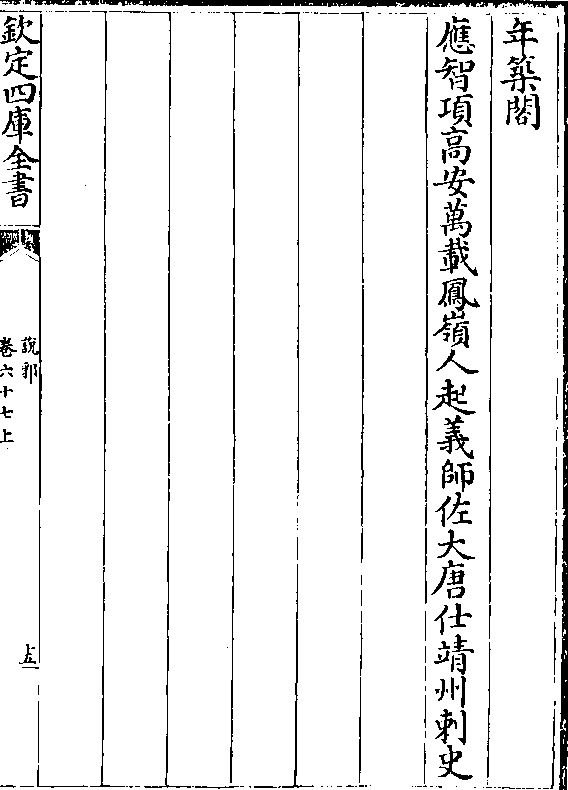 年築閣
應智項高安萬載鳳嶺人起義師佐大唐仕靖州刺史
欽定四庫全書
說郛
卷六十七上